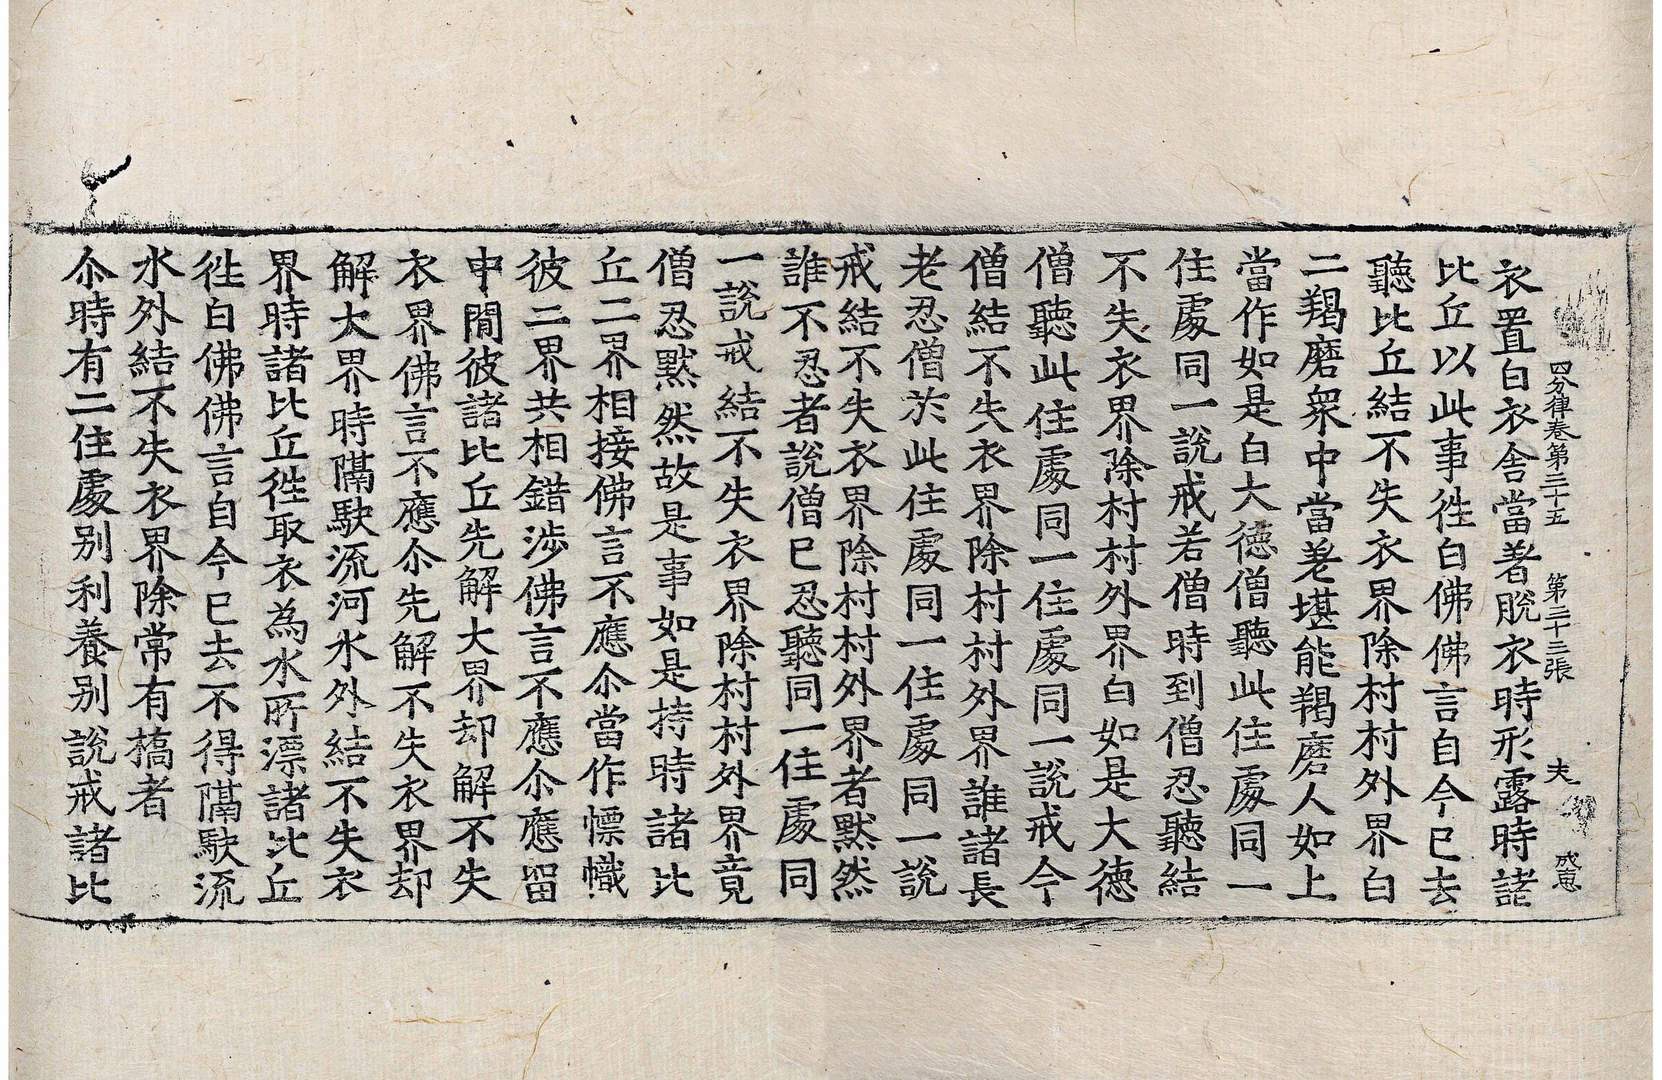 四分律卷第三十五 第二十三張 夫 成惠
衣置白衣舍當著脫衣時形露時諸
比丘以此事徃白佛佛言自今已去
聽比丘結不失衣界除村村外界白
二羯磨衆中當差堪能羯磨人如上
當作如是白大德僧聽此住處同一
住處同一說戒若僧時到僧忍聽結
不失衣界除村村外界白如是大德
僧聽此住處同一住處同一說戒今
僧結不失衣界除村村外界誰諸長
老忍僧於此住處同一住處同一說
戒結不失衣界除村村外界者黙然
誰不忍者說僧已忍聽同一住處同
一說戒結不失衣界除村村外界竟
僧忍黙然故是事如是持時諸比
丘二界相接佛言不應尒當作幖幟
彼二界共相錯涉佛言不應尒應留
中閒彼諸比丘先解大界却解不失
衣界佛言不應尒先解不失衣界却
解大界時隔駛流河水外結不失衣
界時諸比丘徃取衣為水所漂諸比丘
徃白佛佛言自今已去不得隔駛流
水外結不失衣界除常有橋者
尒時有二住處别利養别說戒諸比